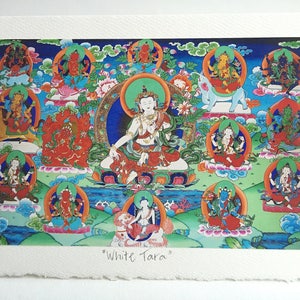 "White Tara"